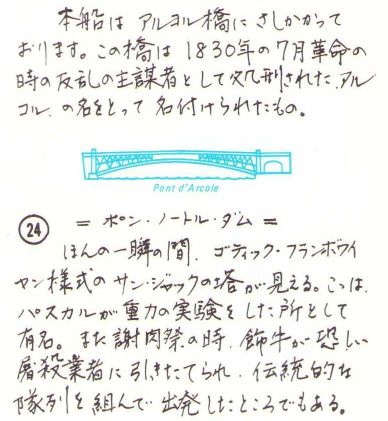 本船は アルコル橋に さしかかって
おります。この橋は 1830年の7月革命の
時の反乱の主謀者として処刑された アル
コル. の名をとって 名付けられたもの。
Pont d'Arcole
24 = ポン・ノートル・ダム =
ほんの一瞬の間、ゴティック・フランボワイ
ヤン様式の サン・ジャックの塔が見える。ここは、
パスカルが 重力の実験を した所として
有名。また 謝肉祭の時、飾牛が 恐しい
屠殺業者に 引きたてられ、伝統的な
隊列を 組んで 出発したところでもある。